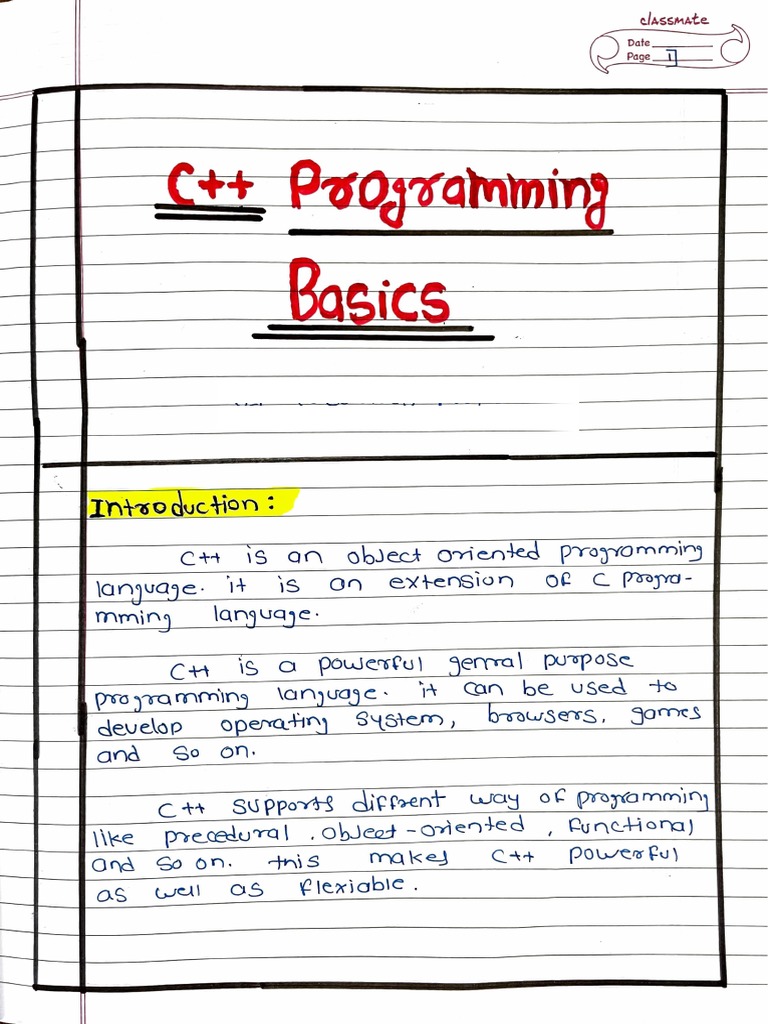 classmate
Date
Page 1
C++ Programming
Basics
Introduction:
C++ is an object oriented programming
language. it is an extension of C progra-
mming language.
C++ is a powerful genral purpose
programming language. it can be used to
develop operating system, browsers, games
and so on.
C++ supports diffrent way of programming
like precedural, object-oriented, functional
and so on. this makes C++ powerful
as well as flexiable.